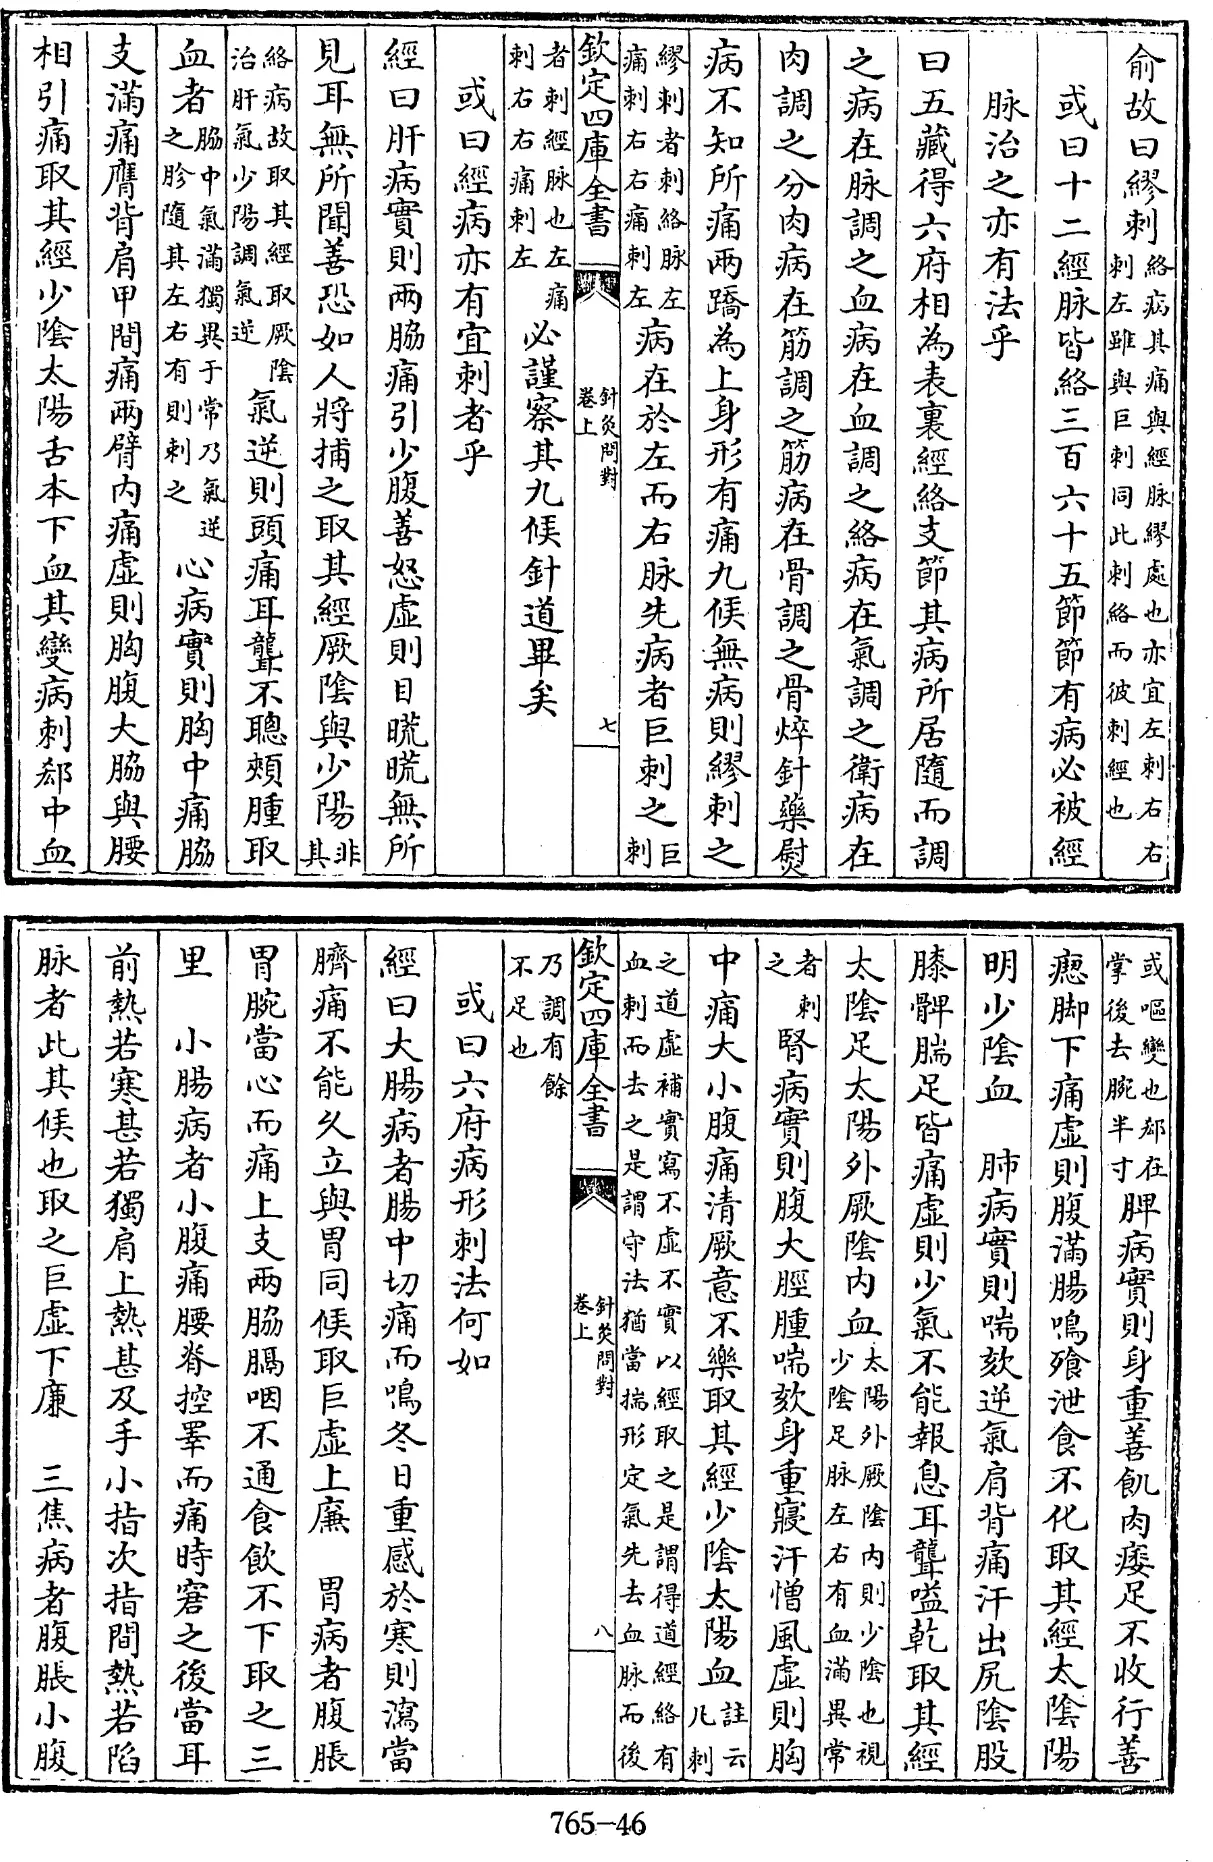 俞故曰繆刺絡病其痛與經脉繆處也亦宜左刺右右刺左雖與巨刺同此刺絡而彼刺經也
或曰十二經脉皆絡三百六十五節節有病必被經
脉治之亦有法乎
曰五藏得六府相為表裏經絡支節其病所居隨而調
之病在脉調之血病在血調之絡病在氣調之衛病在
肉調之分肉病在筋調之筋病在骨調之骨焠針藥熨
病不知所痛兩蹻為上身形有痛九候無病則繆刺之
繆刺者刺絡脉左痛刺右右痛刺左病在於左而右脉先病者巨刺之巨刺
欽定四庫全書
針灸問對
卷上
七
者刺經脉也左痛刺右右痛刺左必謹察其九候針道畢矣
或曰經病亦有宜刺者乎
經曰肝病實則兩脇痛引少腹善怒虛則目䀮䀮無所
見耳無所聞善恐如人將捕之取其經厥陰與少陽非其
絡病故取其經取厥陰治肝氣少陽調氣逆氣逆則頭痛耳聾不聰頰腫取
血者脇中氣滿獨異于常乃氣逆之胗隨其左右有則刺之心病實則胸中痛脇
支滿痛膺背肩甲間痛兩臂内痛虛則胸腹大脇與腰
相引痛取其經少陰太陽舌本下血其變病刺郄中血
或嘔變也郄在掌後去腕半寸脾病實則身重善飢肉痿足不收行善
瘛脚下痛虛則腹滿腸鳴飱泄食不化取其經太陰陽
明少陰血　肺病實則喘欬逆氣肩背痛汗出尻陰股
膝髀腨足皆痛虛則少氣不能報息耳聾嗌乾取其經
太陰足太陽外厥陰内血太陽外厥陰内則少陰也視少陰足脉左右有血滿異常
者刺之腎病實則腹大脛腫喘欬身重寢汗憎風虛則胸
中痛大小腹痛清厥意不樂取其經少陰太陽血註云凡刺
之道虛補實寫不虛不實以經取之是謂得道經絡有血刺而去之是謂守法猶當揣形定氣先去血脉而後
欽定四庫全書
針灸問對
卷上
八
乃調有餘不足也
或曰六府病形刺法何如
經曰大腸病者腸中切痛而鳴冬日重感於寒則瀉當
臍痛不能久立與胃同候取巨虛上廉　胃病者腹脹
胃脘當心而痛上支兩脇膈咽不通食飲不下取之三
里　小腸病者小腹痛腰脊控睪而痛時窘之後當耳
前熱若寒甚若獨肩上熱甚及手小指次指間熱若陷
脉者此其候也取之巨虛下廉　三焦病者腹脹小腹
765-46